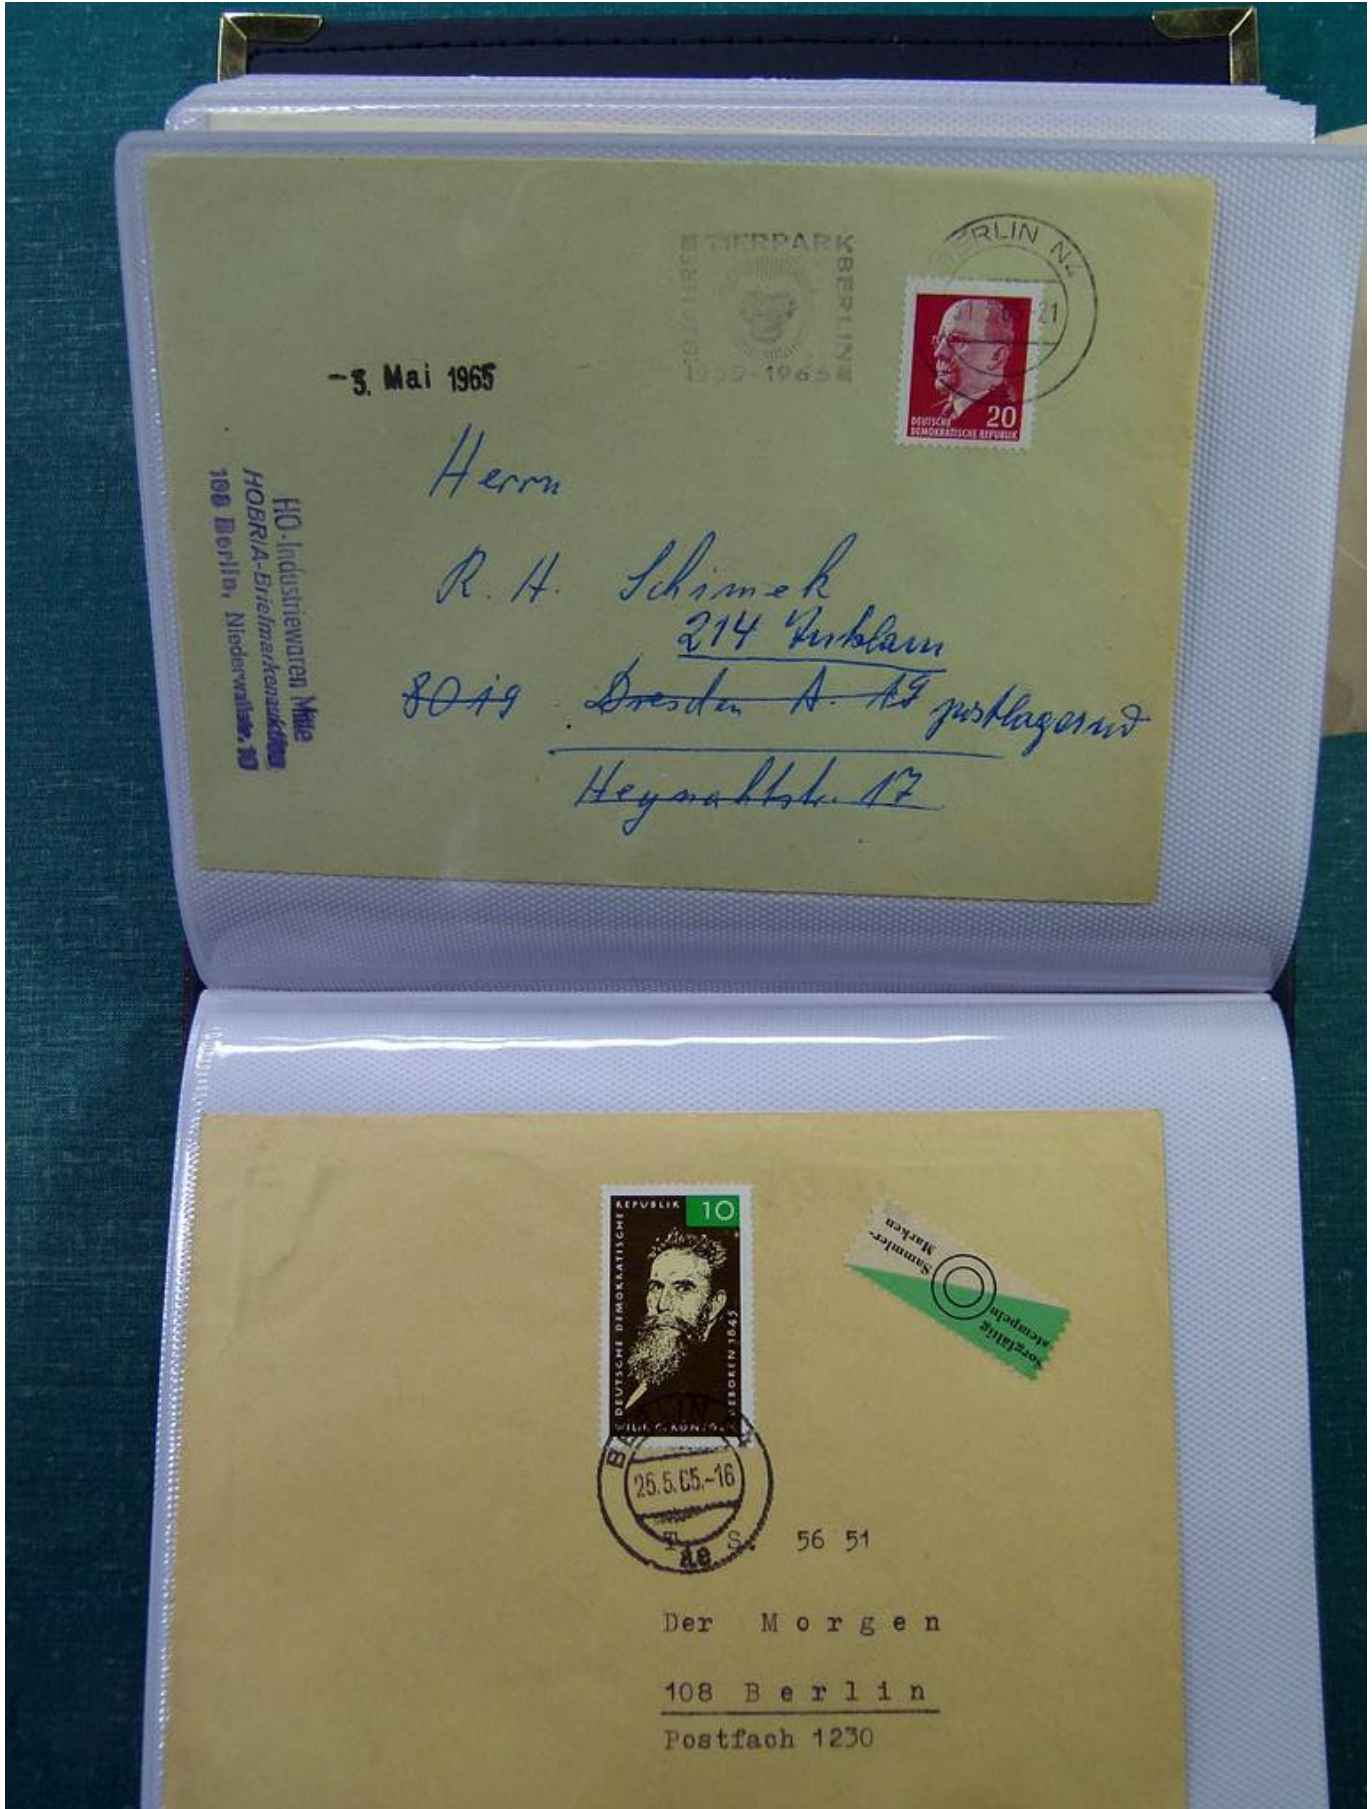 TIERPARK
BERLIN
1955-1965
BERLIN N4
-21
20
DEUTSCHE
DEMOKRATISCHE REPUBLIK
-3. Mai 1965
HO-Industriewaren Mitte
HOBRIA-Briefmarkenauktion
108 Berlin, Niederwallstr. 10
Herrn
R. H. Schimek
214 Anklam
8019 Dresden A. 19 postlagernd
Heynahtstr. 17
DEUTSCHE DEMOKRATISCHE REPUBLIK
10
GEBOREN 1845
WILH. C. RÖNTGEN
Sammler-
Marken
Sorgfältig
stempeln
BERLIN
25.5.65.-16
ae
T S. 56 51
Der Morgen
108 Berlin
Postfach 1230